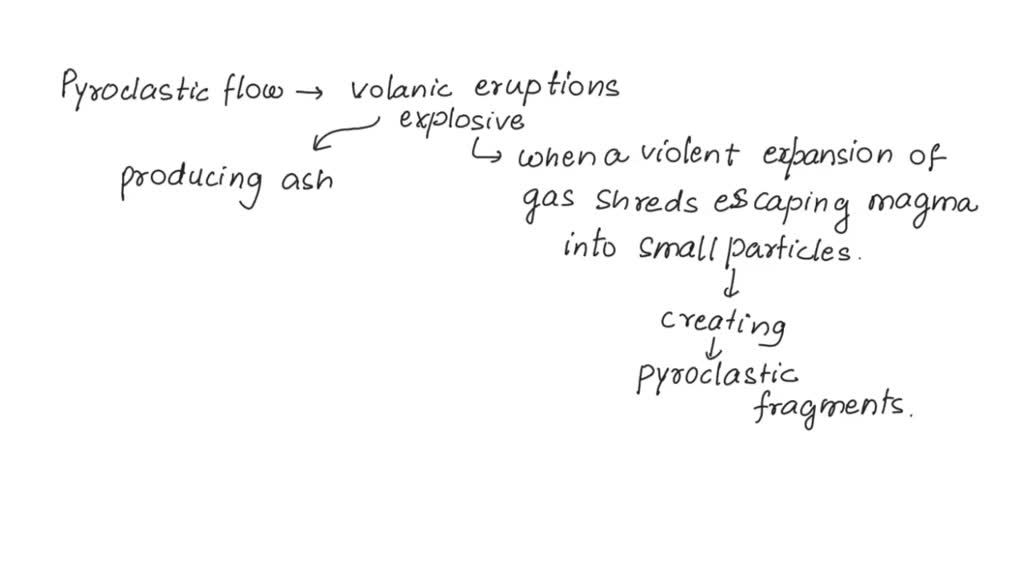 Pyroclastic flow → volanic eruptions
explosive
producing ash
↳ when a violent expansion of
gas shreds escaping magma
into small particles.
↓
creating
↓
pyroclastic
fragments.